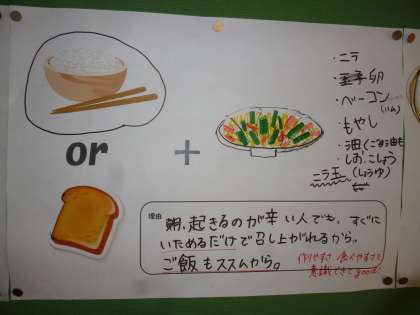 or
+
・ニラ
・卵
・ベーコン
(ハム)
・もやし
・油(ごま油も
しお.こしょう
ニラ玉 (しょうゆ)
理由
朝、起きるのが辛い人でも、すぐに
いためるだけで召し上がれるから。
ご飯もススムから。
作りやすさ 食べやすさを
意識できてgood!